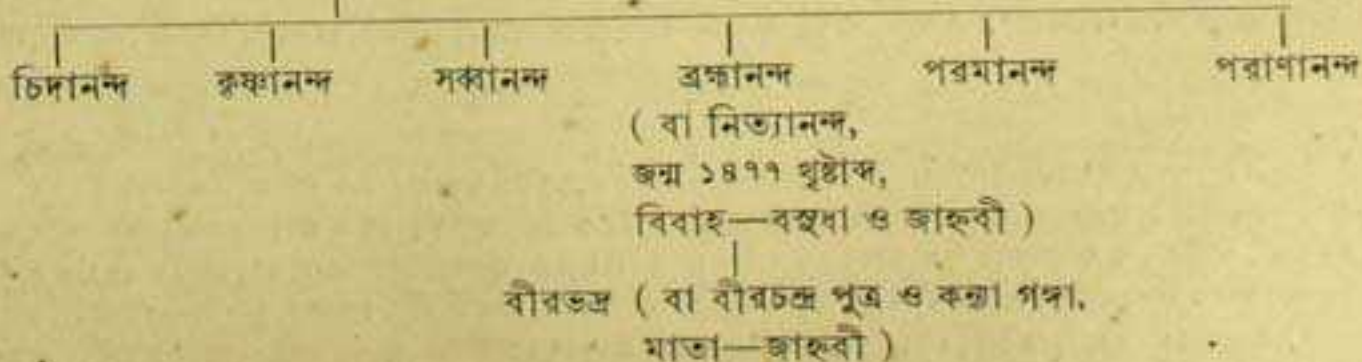 চিদানন্দ কৃষ্ণানন্দ সর্ব্বানন্দ ব্রহ্মানন্দ পরমানন্দ পরাণানন্দ
( বা নিত্যানন্দ,
জন্ম ১৪৭৭ খৃষ্টাব্দ,
বিবাহ—বসুধা ও জাহ্নবী )
বীরভদ্র ( বা বীরচন্দ্র পুত্র ও কন্যা গঙ্গা,
মাতা—জাহ্নবী )